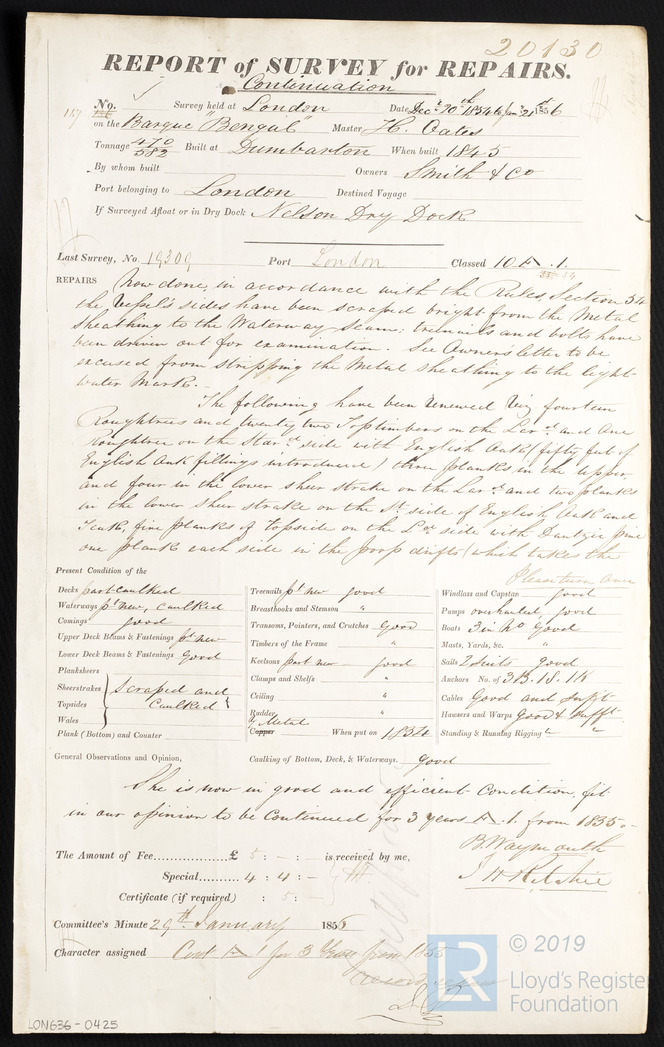 20130
REPORT of SURVEY for REPAIRS.
Continuation
No. Survey held at London Date Decr. 20th 1854 to Jan 21st 1856
on the Barque "Bengal" Master H. Oates
Tonnage 470/582 Built at Dumbarton When built 1845
By whom built Owners Smith & Co
Port belonging to London Destined Voyage
If Surveyed Afloat or in Dry Dock Nelson Dry Dock
Last Survey, No. 19309 Port London Classed 10 A.1.
REPAIRS Now done, in accordance with the Rules, Section 34
the Vessel's sides have been scraped bright from the Metal
sheathing to the Waterway Seams; treenails and bolts have
been driven out for examination. See Owners letter to be
excused from stripping the Metal sheathing to the light
water Mark.
The following have been renewed Viz fourteen
Roughtrees and twenty two Toptimbers on the Lard. and One
roughtree on the Stard. side with English Oak (fifty feet of
English Oak fillings introduced) three planks in the upper
and four in the lower sheer strake on the Lard. and two planks
in the lower sheer strake on the St. side of English Oak and
Teak, five planks of topside on the Ld. side with Dantzic pine
one plank each side in the poop drifts (which takes the
Please turn over
Present Condition of the
Decks part caulked
Waterways pt new, caulked
Comings good
Upper Deck Beams & Fastenings pt new
Lower Deck Beams & Fastenings good
Planksheers
Sheerstrakes
Topsides
Wales
scraped and caulked
Plank (Bottom) and Counter
Treenails pt new good
Breasthooks and Stemson "
Transoms, Pointers, and Crutches Good
Timbers of the Frame "
Keelsons part new good
Clamps and Shelfs "
Ceiling "
Rudder "
Y. Metal
Copper When put on 1854
Windlass and Capstan good
Pumps overhauled good
Boats 3 in No Good
Masts, Yards, &c. "
Sails 2 suits good
Anchors No. of 3 B. 1 S. 1 K
Cables Good and sufft
Hawsers and Warps Good & sufft.
Standing & Running Rigging " "
General Observations and Opinion, Caulking of Bottom, Deck, & Waterways. Good
She is now in good and efficient Condition, fit
in our opinion to be Continued for 3 years A.1. from 1855.
B. Waymouth
J H Ritchie
The Amount of Fee £ 5 : - : - is received by me,
Special 4 : 4 : -
Certificate (if required) : 5 : -
Committee's Minute 29th January 1856
Character assigned Cont A 1 for 3 Years from 1855
LON636-0425
LR © 2019
Lloyd's Register
Foundation